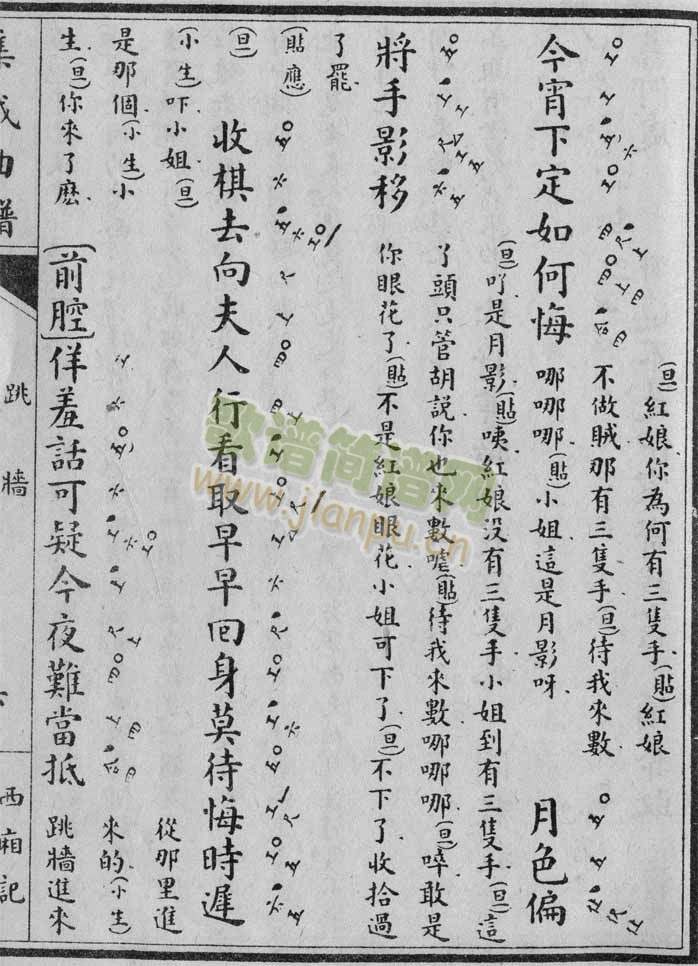 今宵下定如何悔
(旦)紅娘你為何有三隻手(貼)紅娘
不做賊那有三隻手(旦)待我來數
哪哪哪(貼)小姐這是月影呀
月色偏
將手影移
(旦)吖是月影(貼)咦紅娘没有三隻手小姐到有三隻手(旦)這
丫頭只管胡說你也來數嘘(貼)待我來數哪哪哪(旦)啐敢是
你眼花了(貼)不是紅娘眼花小姐可下了(旦)不下了收拾過
了罷
(貼應)
(旦)
收棋去向夫人行看取早早回身莫待悔時遲
(小生)吓小姐(旦)
是那個(小生)小
生(旦)你來了麽
[前腔]佯羞話可疑今夜難當抵
從那里進
來的(小生)
跳牆進來
集成曲譜
跳牆
西廂記
歌谱简谱网
www.jianpu.cn